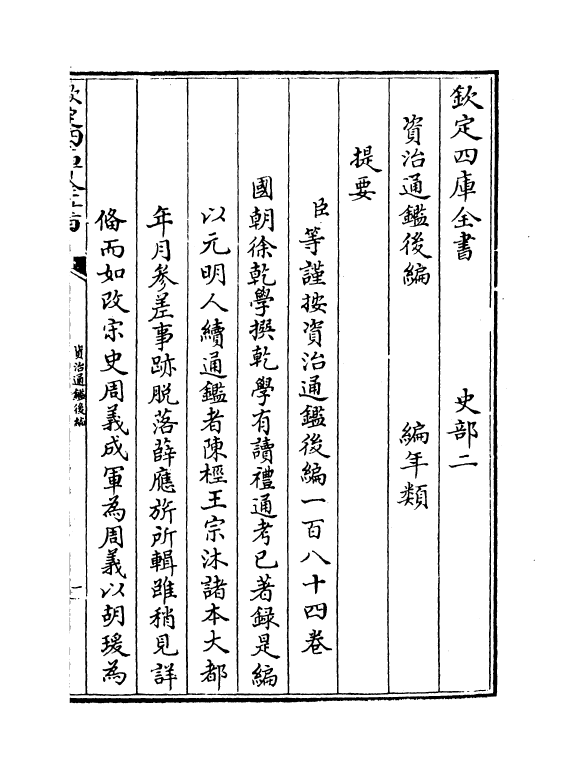 欽定四庫全書　史部二
資治通鑑後編　編年類
提要
臣等謹按資治通鑑後編一百八十四卷
國朝徐乾學撰乾學有讀禮通考已著録是編
以元明人續通鑑者陳桱王宗沐諸本大都
年月參差事跡脱落薛應旂所輯雖稍見詳
偹而如改宋史周義成軍為周義以胡瑗為
欽定四庫全書
資治通鑑後編
一